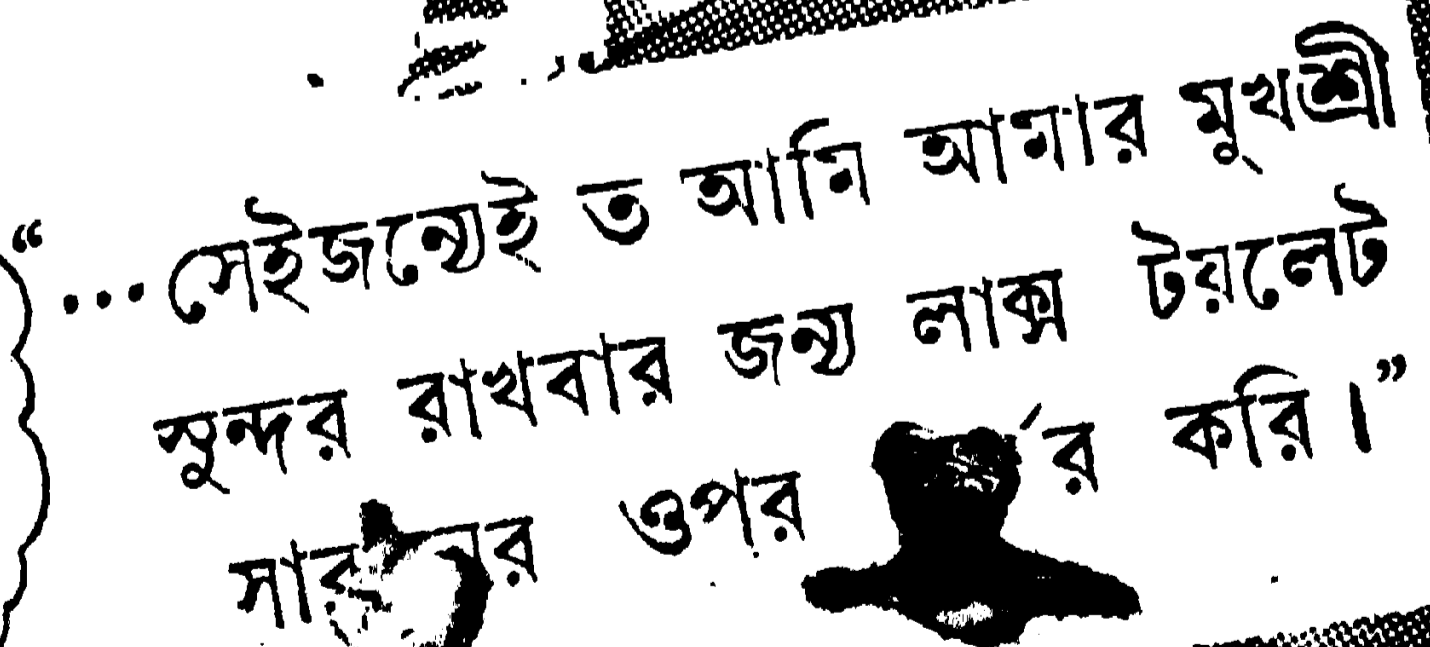 “...সেইজন্যেই ত আমি আমার মুখশ্রী
সুন্দর রাখবার জন্য লাক্স টয়লেট
ওপর করি।”